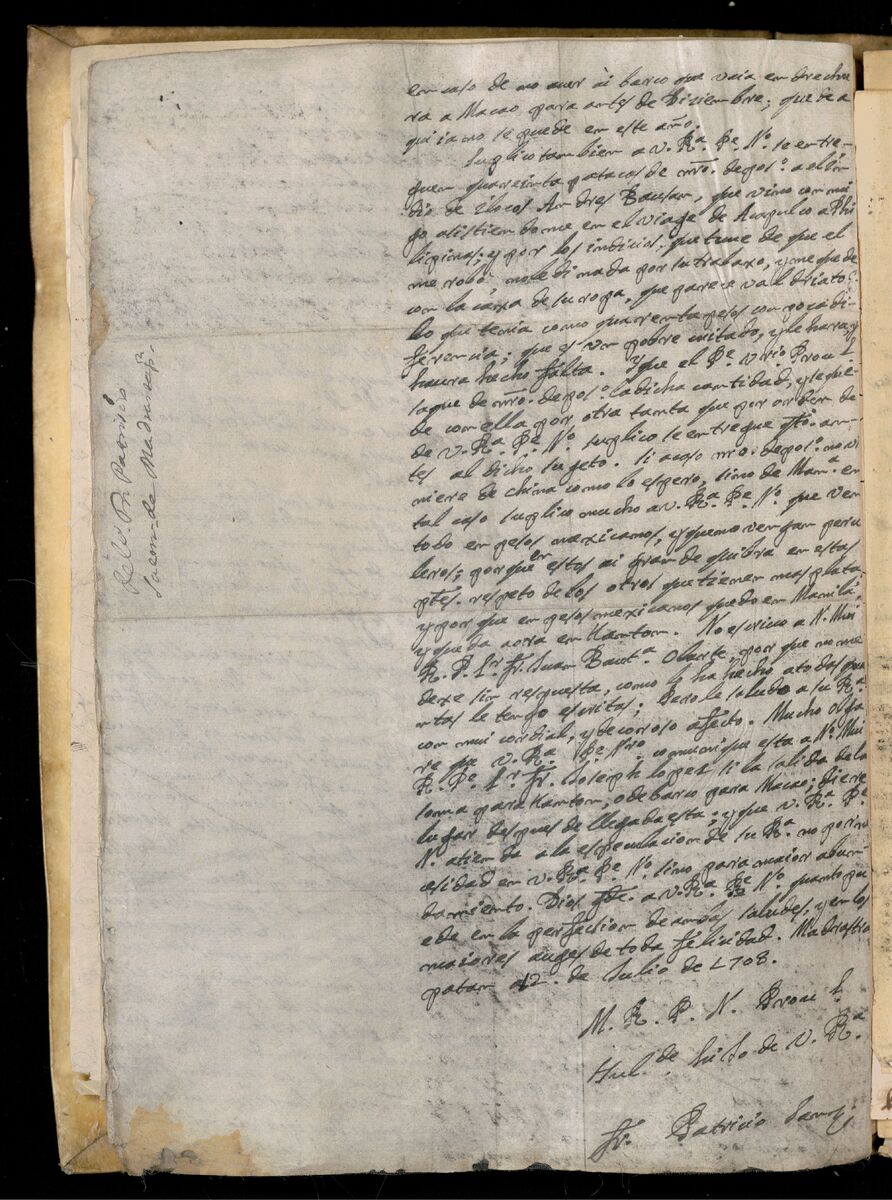 en caso de no auer ai barco que vaia en drechu
ra a Macao para antes de Diziembre; que de a
qui ia no se puede en este año.
Suplico tambien a V. Rª. Pe. Nº. se entre-
guen quareinta patacos de nrō. deposº. a el in
dio de Ilocos Andres Bausan, que vino conmi
go asistiendome en el viage de Acapulco a Phi
lipinas; y por los indicios, que tuue de que el
me robò no le di nada por su trabaxo, y me quede
con la caxa de su ropa, que parece valdria to
lo que tenia como quarenta pesos con poca di-
ferencia; que es vn pobre
haura hecho falta. Y que el Pe. Prou l
saque de nrō. deposº. la dicha cantidad, y se que-
de con ella por otra tanta que por orden de
de V. Rª. Pe. Nº. suplico se entregue an-
tes al dicho sujeto. Si acaso nrō. deposº. no vi
niere de china como lo espero, sino de Manª. en
tal caso suplico mucho a V. Rª. Pe. Nº. que ven
todo en pesos mexicanos, y que no vengan peru
leros; porque en estos ai gran de quibra en estas
ptes. respeto de los otros que tienen mas plata
y por que en pesos mexicanos quedo en Manila,
y queda aora en Kantom. No escrivo a N. Mui
R. P. Lr. Fr. Juan Bautª. Olarte, por que no me
dexe sin respuesta, como lo ha hecho a todas qua
ntas le tengo escritas; Pero le saludo a su Rª.
con mui cordial, y decoroso afecto. Mucho olga
re que V. Rª. Pe. Nrō. comunique esta a N. Mui
R. Pe. Lr. Fr. Joseph lopez si la salida de la
soma para Kantom, o de barco para Macao; diere
lugar despues de llegada esta; y que V. Rª. Pe
N. atienda a la especulacion de su Rª. no por ne
cesidad en V. Rª. Pe. Nº. sino para maior abun-
damiento. Dios gde. a V. Rª. Pe. Nº. quanto pu
ede en la perfeccion de ambas saludes, y en los
maiores auges de toda felicidad. Madrasta
patan a 12. de Julio de 1708.
M. R. P. N. Prou l.
Hul. de hijo de V. Rª.
Fr. Patricio
Relo. Pr. Patricio
de Madrastap